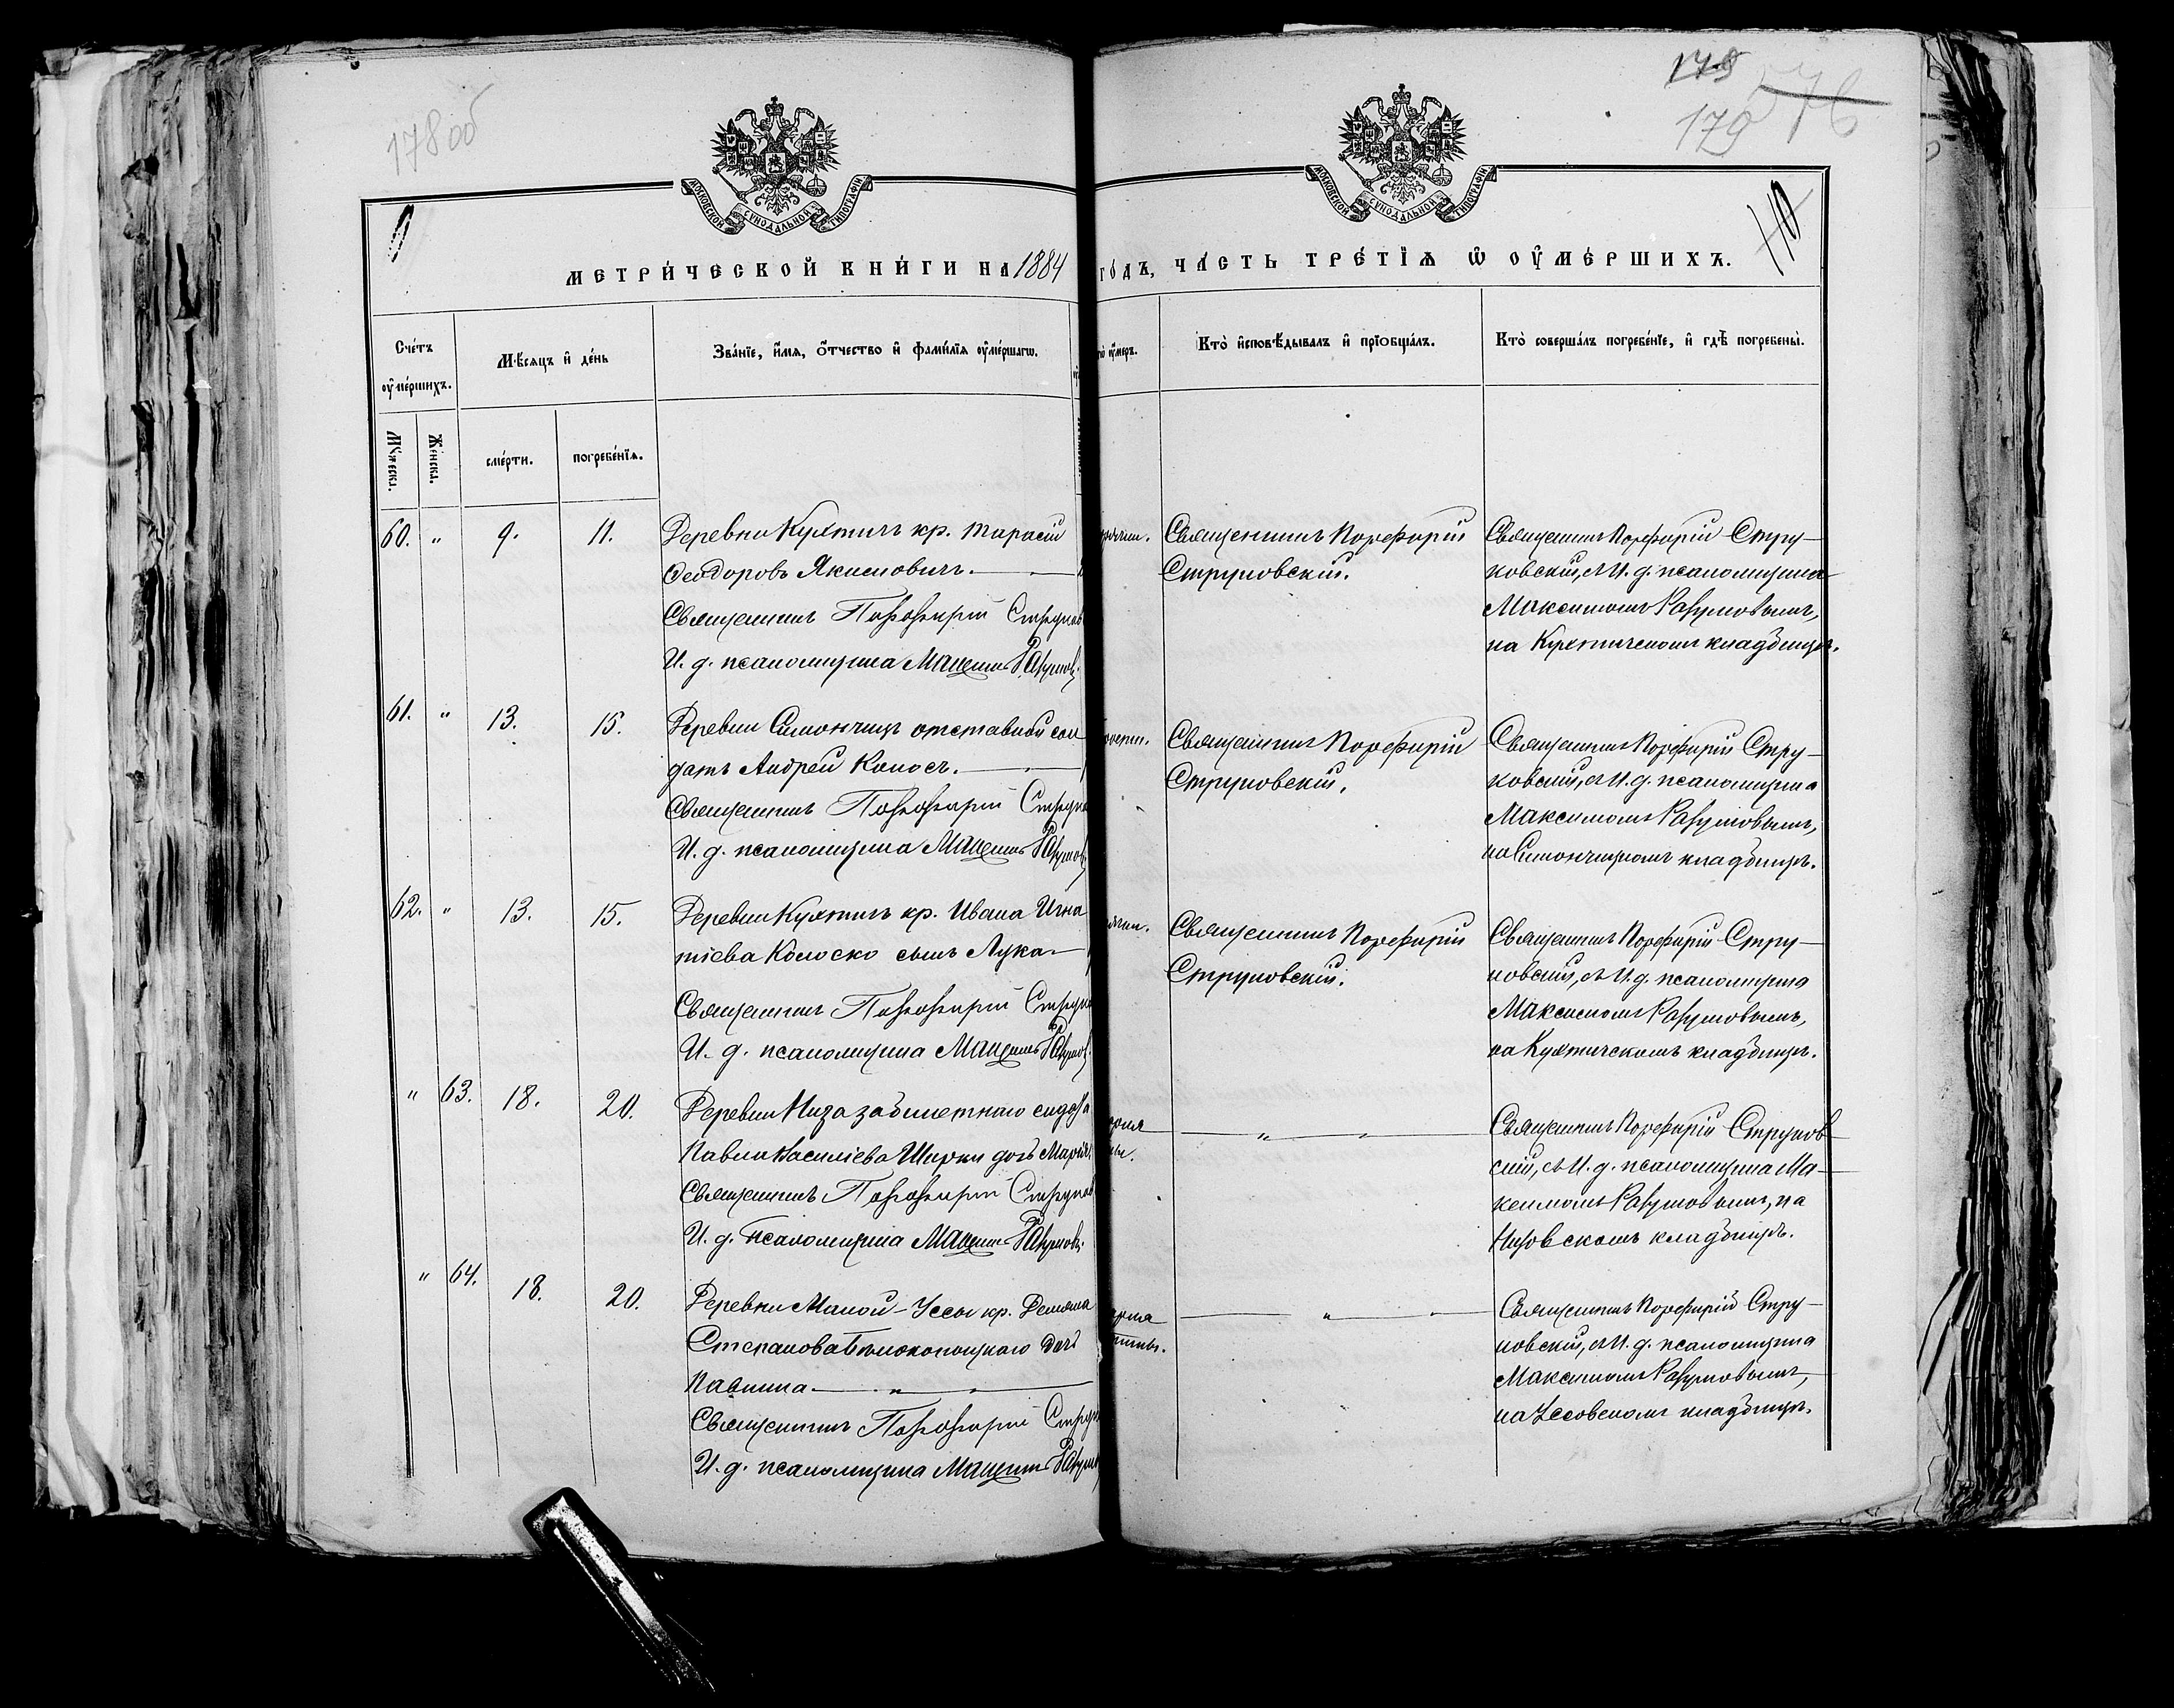 178 об
179
576
179
110
МОСКОВСКОЙ СѴНОДАЛЬНОЙ ТИПОГРАФІИ
МОСКОВСКОЙ СѴНОДАЛЬНОЙ ТИПОГРАФІИ
МЕТРИ́ЧЕСКОЙ КНИ́ГИ НА 1884
ГО́ДЪ, ЧА́СТЬ ТРЕ́ТІѦ Ѿ ОУ҆МЕ́РШИХЪ.
Сче́тъ
оу҆ме́ршихъ.
Мѣ́сяцъ и҆ де́нь
Зва́нїе, и҆́мѧ, ѻ҆́тчество и҆ фами́лїѧ оу҆ме́ршагѡ.
оу҆́меръ.
Кто̀ и҆сповѣ́дывалъ и҆ прїѡбща́лъ.
Кто̀ соверша́лъ погребе́нїе, и҆ гдѣ̀ погребены̀.
Му́жескъ.
Же́нскъ.
сме́рти.
погребе́нїѧ.
60. " 9. 11. Деревни Кухтичъ кр. Тарасій
Ѳеодоровъ Якимовичъ.
Священникъ Порфирій Струков
И. д. псаломщика Максимъ
Священникъ Порфирій
Струковскій.
Священникъ Порфирій Стру-
ковскій, съ И. д. псаломщика
Максимомъ
на Кухтичскомъ кладбищѣ.
61. " 13. 15. Деревни Симончицъ отставной сол
датъ Андрей Колосъ.
Священникъ Порфирій Струко
И. д. псаломщика Максимъ
Священникъ Порфирій
Струковскій.
Священникъ Порфирій Стру-
ковскій, съ И. д. псаломщика
Максимомъ
на кладбищѣ.
62. " 13. 15. Деревни Кухтичъ кр. Ивана Игна
тіева Колоско сынъ Лука
Священникъ Порфирій Струко
И. д. псаломщика Максимъ
Священникъ Порфирій
Струковскій.
Священникъ Порфирій Стру-
ковскій, съ И. д. псаломщика
Максимомъ
на Кухтичскомъ кладбищѣ.
" 63. 18. 20. Деревни Низа
Павла Василіева Ширки дочь Марія
Священникъ Порфирій Струков
И. д. псаломщика Максимъ
" "
Священникъ Порфирій Струков-
скій, съ И. д. псаломщика Ма-
ксимомъ на
Низовскомъ кладбищѣ.
" 64. 18. 20. Деревни Малой-Уссы кр. Демьяна
Степанова дочь
Павлина " "
Священникъ Порфирій Струк
И. д. псаломщика Максимъ
" "
Священникъ Порфирій Стру-
ковскій, съ И. д. псаломщика
Максимомъ
на Уссовскомъ кладбищѣ.